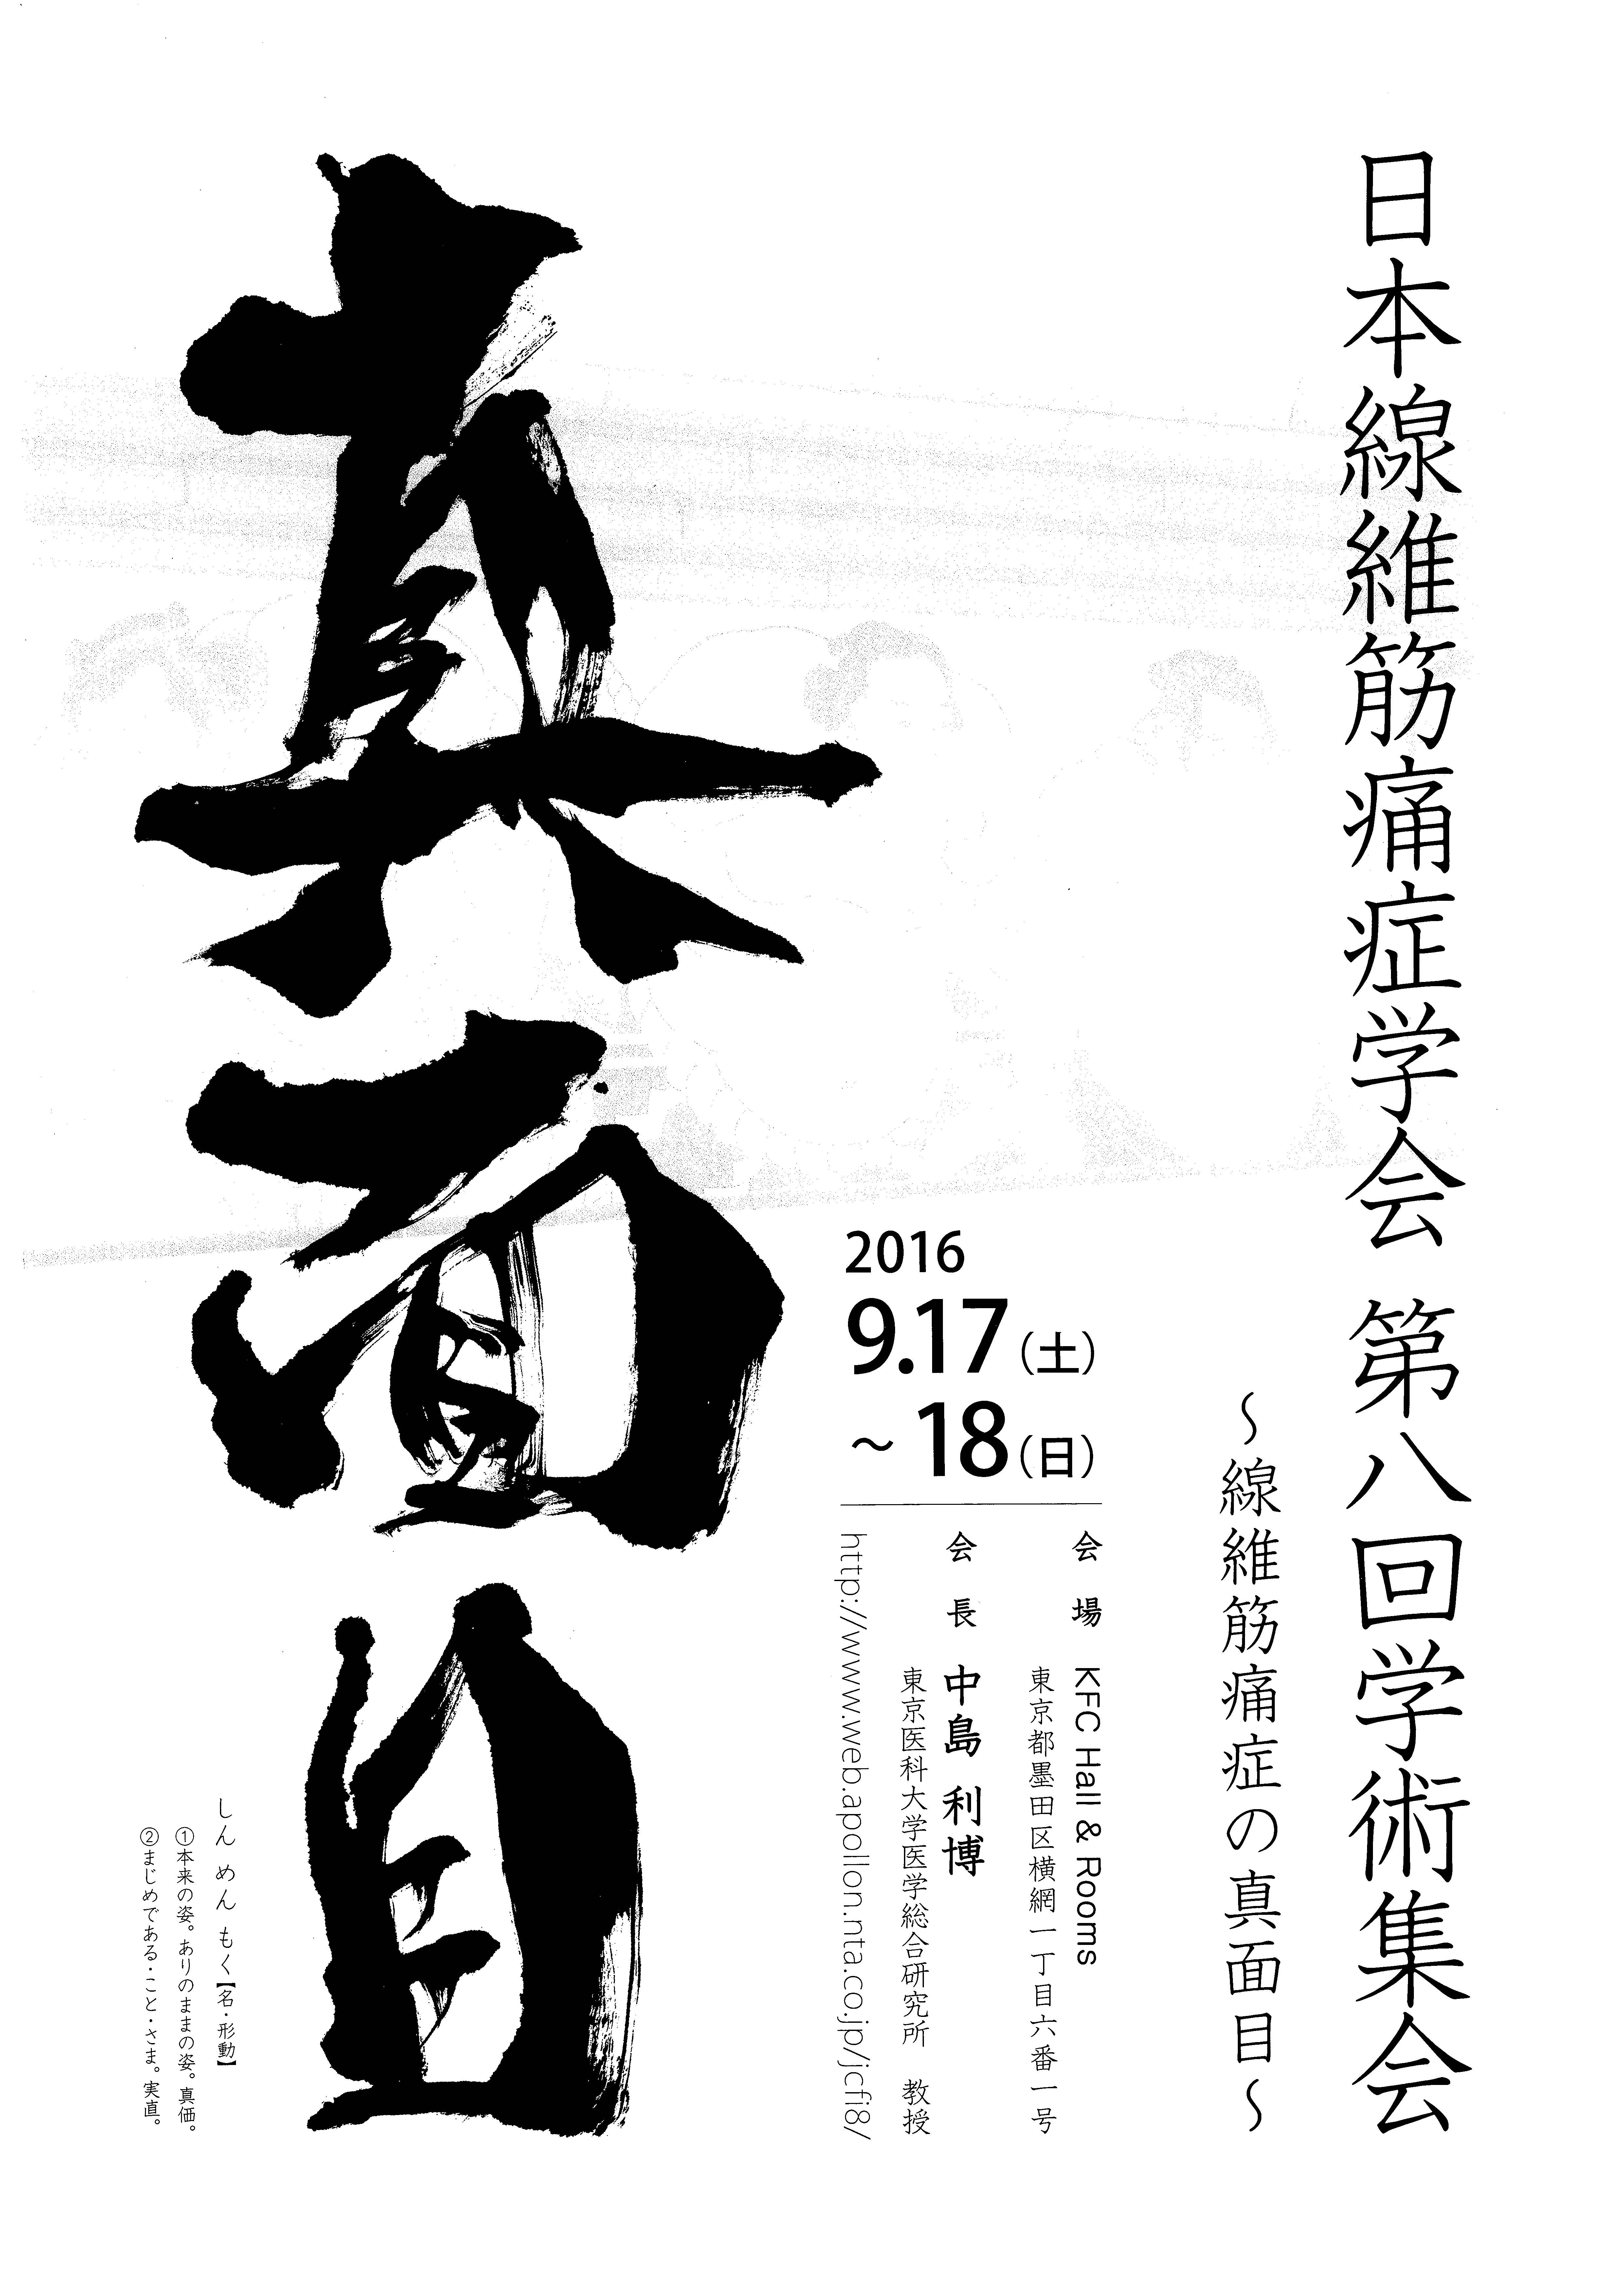 日本線維筋痛症学会 第八回学術集会
～線維筋痛症の真面目～
2016
9.17（土）
～18（日）
会場 KFC Hall & Rooms
東京都墨田区横網一丁目六番一号
会長 中島 利博
東京医科大学医学総合研究所 教授
http://www.web.apollon.nta.co.jp/jcfi8/
真面目
しん めん もく【名・形動】
①本来の姿。ありのままの姿。真価。
②まじめである・こと・さま。実直。